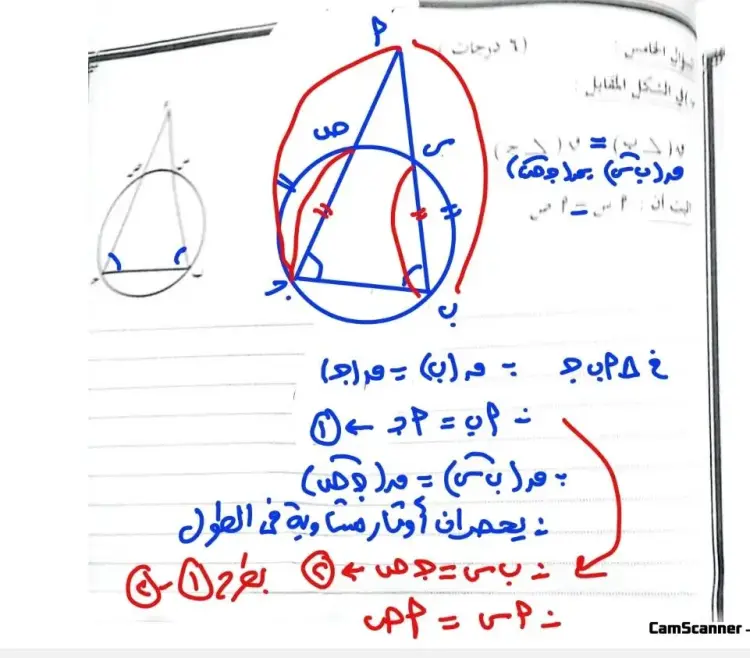 السؤال الخامس : (٦ درجات)
في الشكل المقابل :
ق(ب) = ق(ج)
ق(ب س) = ق(ج ص)
اثبت أن : أ س = أ ص
أ
ص
س
ج
ب
في Δ أ ب ج ∵ ق(ب) = ق(ج)
∴ أب = أج ← ①
∵ ق(ب س) = ق(ج ص)
∴ يحصران أوتار متساوية في الطول
∴ ب س = ج ص ← ② بطرح ① - ②
∴ أ س = أ ص
CamScanner